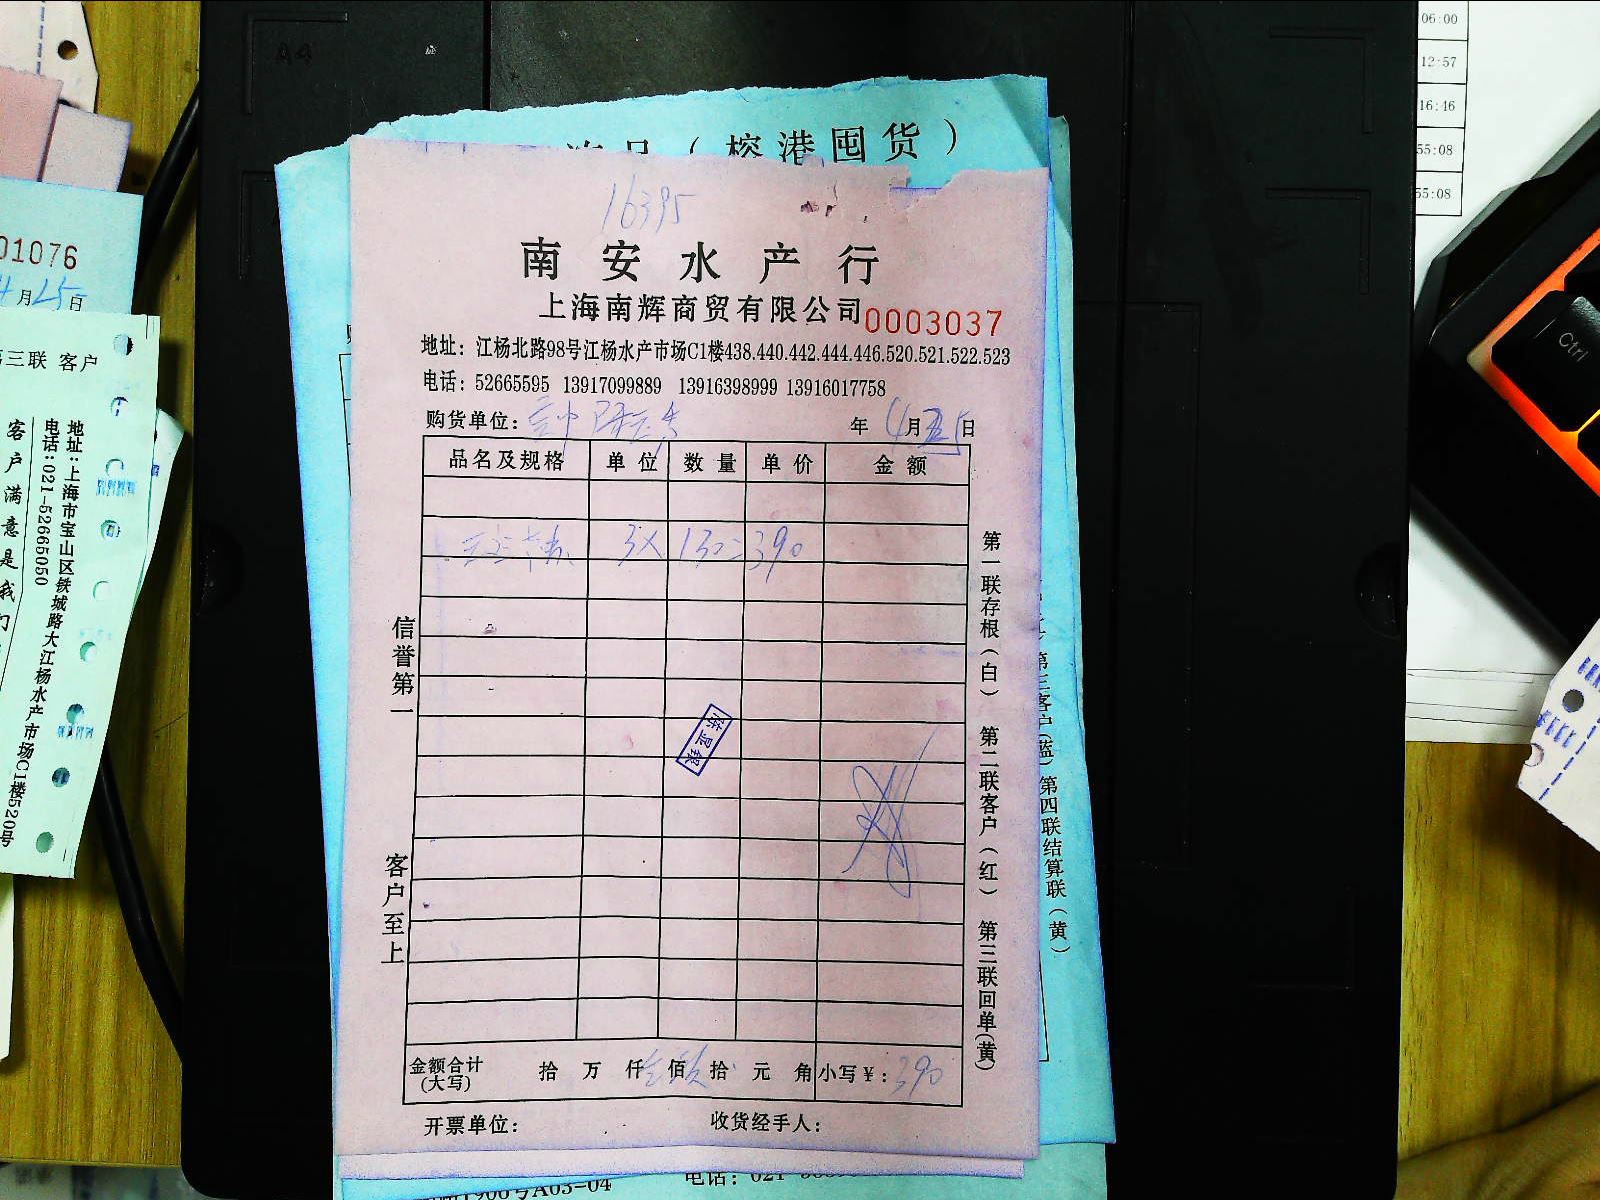 A4
06:00
12:57
16:46
55:08
55:08
（榕港囤货）
16395
南安水产行
上海南辉商贸有限公司
0003037
地址：江杨北路98号江杨水产市场C1楼438.440.442.444.446.520.521.522.523
电话：52665595 13917099889 13916398999 13916017758
购货单位：
年 4月25日
品名及规格 单位 数量 单价 金额
3X 130=390
信誉第一
客户至上
第一联存根（白） 第二联客户（红） 第三联回单（黄）
金额合计（大写） 拾 万 仟 佰 拾 元 角 小写￥：390
开票单位：
收货经手人：
第三客户（蓝）第四联结算联（黄）
A03-04
电话：021-
01076
4月25日
第三联 客户
地址：上海市宝山区铁城路大江杨水产市场C1楼520号
电话：021-52665050
客户满意是我们
Ctrl